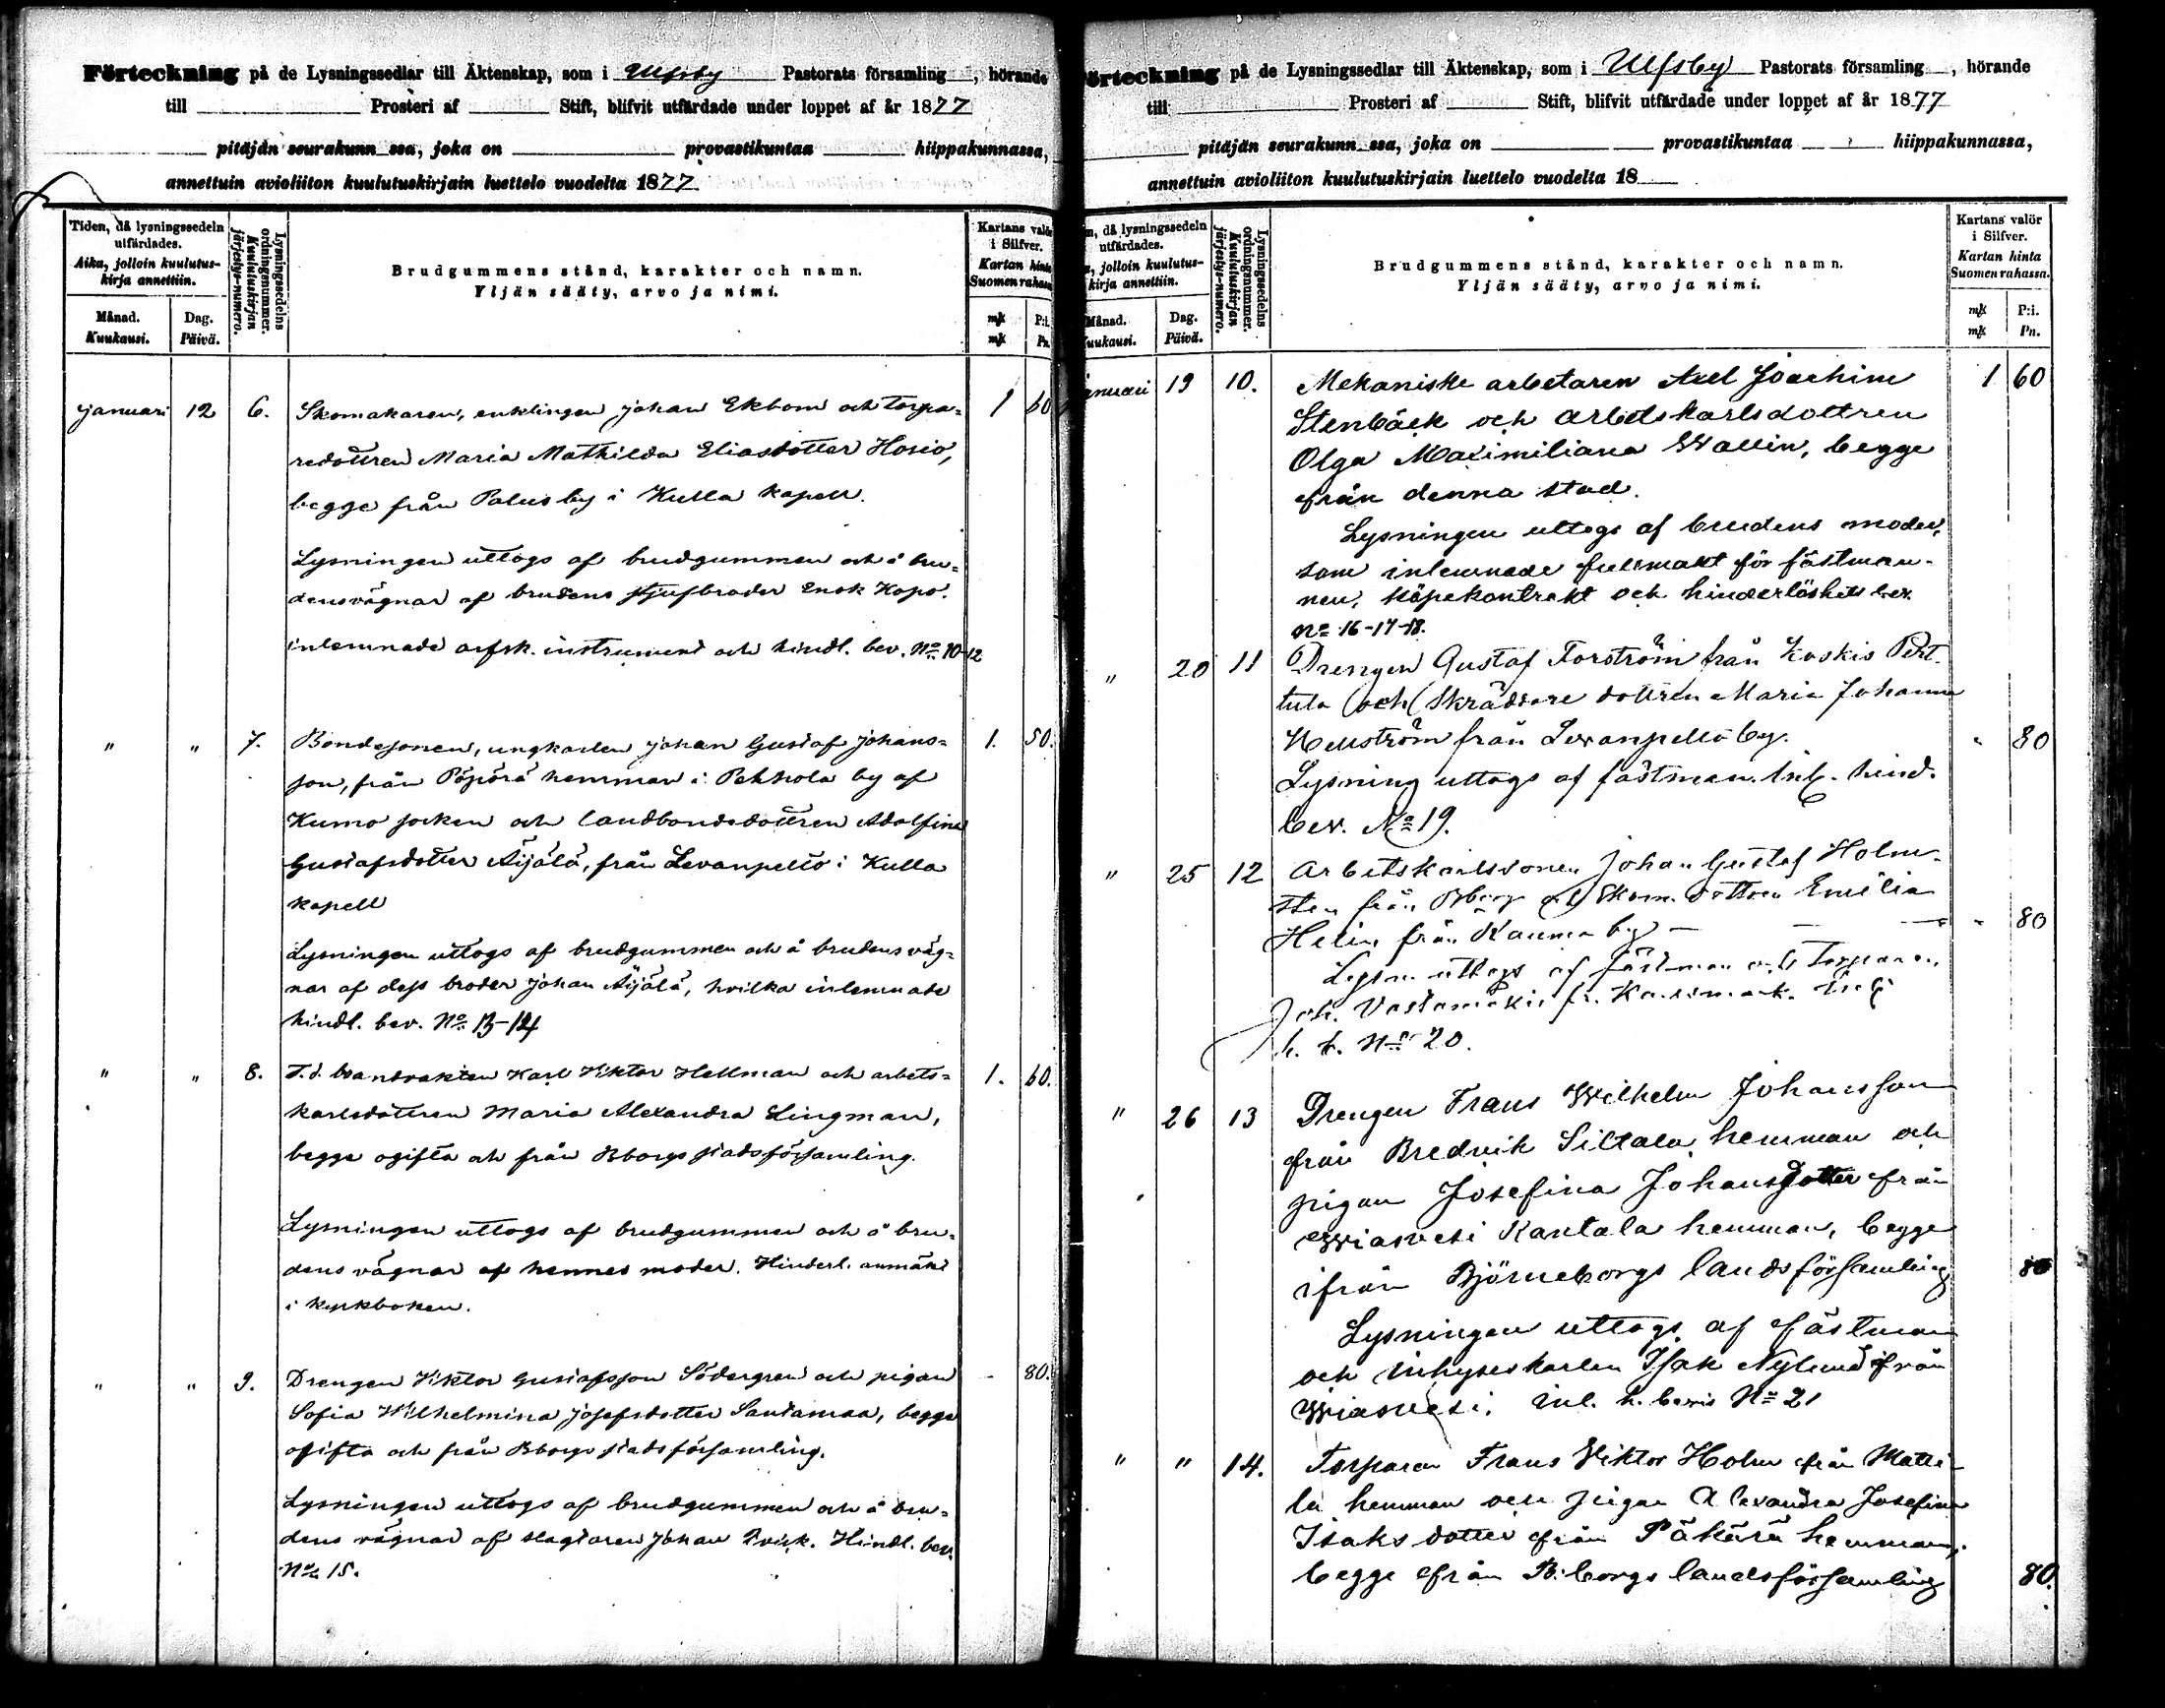 Förteckning på de Lysningssedlar till Äktenskap, som i Ulfsby Pastorats församling , hörande
till Prosteri af Stift, blifvit utfärdade under loppet af år 1877
pitäjän seurakunn ssa, joka on provastikuntaa hiippakunnassa,
annettuin avioliiton kuulutuskirjain luettelo vuodelta 1877
Tiden, då lysningssedeln utfärdades.
Aika, jolloin kuulutuskirja annettiin.
Månad. Kuukausi.
Dag. Päivä.
Lysningssedelns ordningsnummer.
Kuulutuskirjan järjestys-numero.
Brudgummens stånd, karakter och namn.
Yljän sääty, arvo ja nimi.
Kartans valör i Silfver.
Kartan hinta Suomen rahassa
mk P:i.
mk Pn.
januari 12 6. Skomakaren, enklingen Johan Ekbom och torpa= 1 60
redottren Maria Mathilda Eliasdotter Hosio,
begge från Palus by i Kulla kapell.
Lysningen uttogs af brudgummen och å bru=
dens vägnar af brudens stjufbroder Enok Kopo.
inlemnade arfsk. instrument och hindl. bev. No 10-12
" " 7. Bondesonen, ungkarlen Johan Gustaf Johans= 1. 50.
son, från Pöpörä hemman i Pekhola by af
Kumo socken och landbondedottren Adolfina
Gustafsdotter Äijälä, från Levanpelto i Kulla
kapell
Lysningen uttogs af brudgummen och å brudens väg=
nar af dess broder Johan Äijälä, hvilka inlemnade
hindl. bev. No 13-14
" " 8. T.d. banvakten Karl Viktor Hellman och arbets= 1. 60.
karlsdottren Maria Alexandra Lingman,
begge ogifta och från Bborgs stadsförsamling.
Lysningen uttogs af brudgummen och å bru=
dens vägnar af hennes moder. Hinderl. anmäkt
i kyrkboken.
" " 9. Drengen Viktor Gustafsson Södergren och pigan - 80.
Sofia Wilhelmina Josefsdotter Santamaa, begge
ogifta och från Bborgs stadsförsamling.
Lysningen uttogs af brudgummen och å bru=
dens vägnar af slagtaren Johan Hindl. bev.
No 15.
Förteckning på de Lysningssedlar till Äktenskap, som i Ulfsby Pastorats församling , hörande
till Prosteri af Stift, blifvit utfärdade under loppet af år 1877
pitäjän seurakunn ssa, joka on provastikuntaa hiippakunnassa,
annettuin avioliiton kuulutuskirjain luettelo vuodelta 18
n, då lysningssedeln utfärdades.
, jolloin kuulutuskirja annettiin.
Månad. uukausi.
Dag. Päivä.
Lysningssedelns ordningsnummer.
Kuulutuskirjan järjestys-numero.
Brudgummens stånd, karakter och namn.
Yljän sääty, arvo ja nimi.
Kartans valör i Silfver.
Kartan hinta Suomen rahassa.
mk P:i.
mk Pn.
januari 19 10. Mekaniske arbetaren Axel Joachim 1 60
Stenbäck och arbetskarlsdottren
Olga Maximiliana Wallin, begge
från denna stad.
Lysningen uttogs af brudens moder,
som inlemnade fullmakt för fästman-
nen, köpekontrakt och hinderlöshets bev.
No 16-17-18.
" 20 11 Drengen Gustaf Forström från Koskis Pert-
tula och Skräddare dottren Maria Johanna
Hellström från Levanpelto by. " 80
Lysning uttogs af fästman. Inl. hind.
bev. No 19.
" 25 12 Arbetskarlssonen Johan Gustaf Holm-
sten från Bborg och Skom. dottren Emilia
Helin från Kaunis by — " 80
Lysn. uttogs af fästman och Torparen
Joh. Vastamäki fr. Inl.
h. b. No 20.
" 26 13 Drengen Frans Wilhelm Johansson
från Bredvik Siltala hemman och
pigan Josefina Johansdotter från
Wiasvesi Kantala hemman, begge
ifrån Björneborgs landsförsamling 80
Lysningen uttogs af fästman
och inhyseskarlen Isak Nylund från
Wiasvesi. inl. h. bevis No 21
" " 14. Torparen Frans Viktor Holm från Matti-
la hemman och pigan Alexandra Josefina
Isaksdotter från Päkärä hemman,
begge från B:borgs landsförsamling 80.